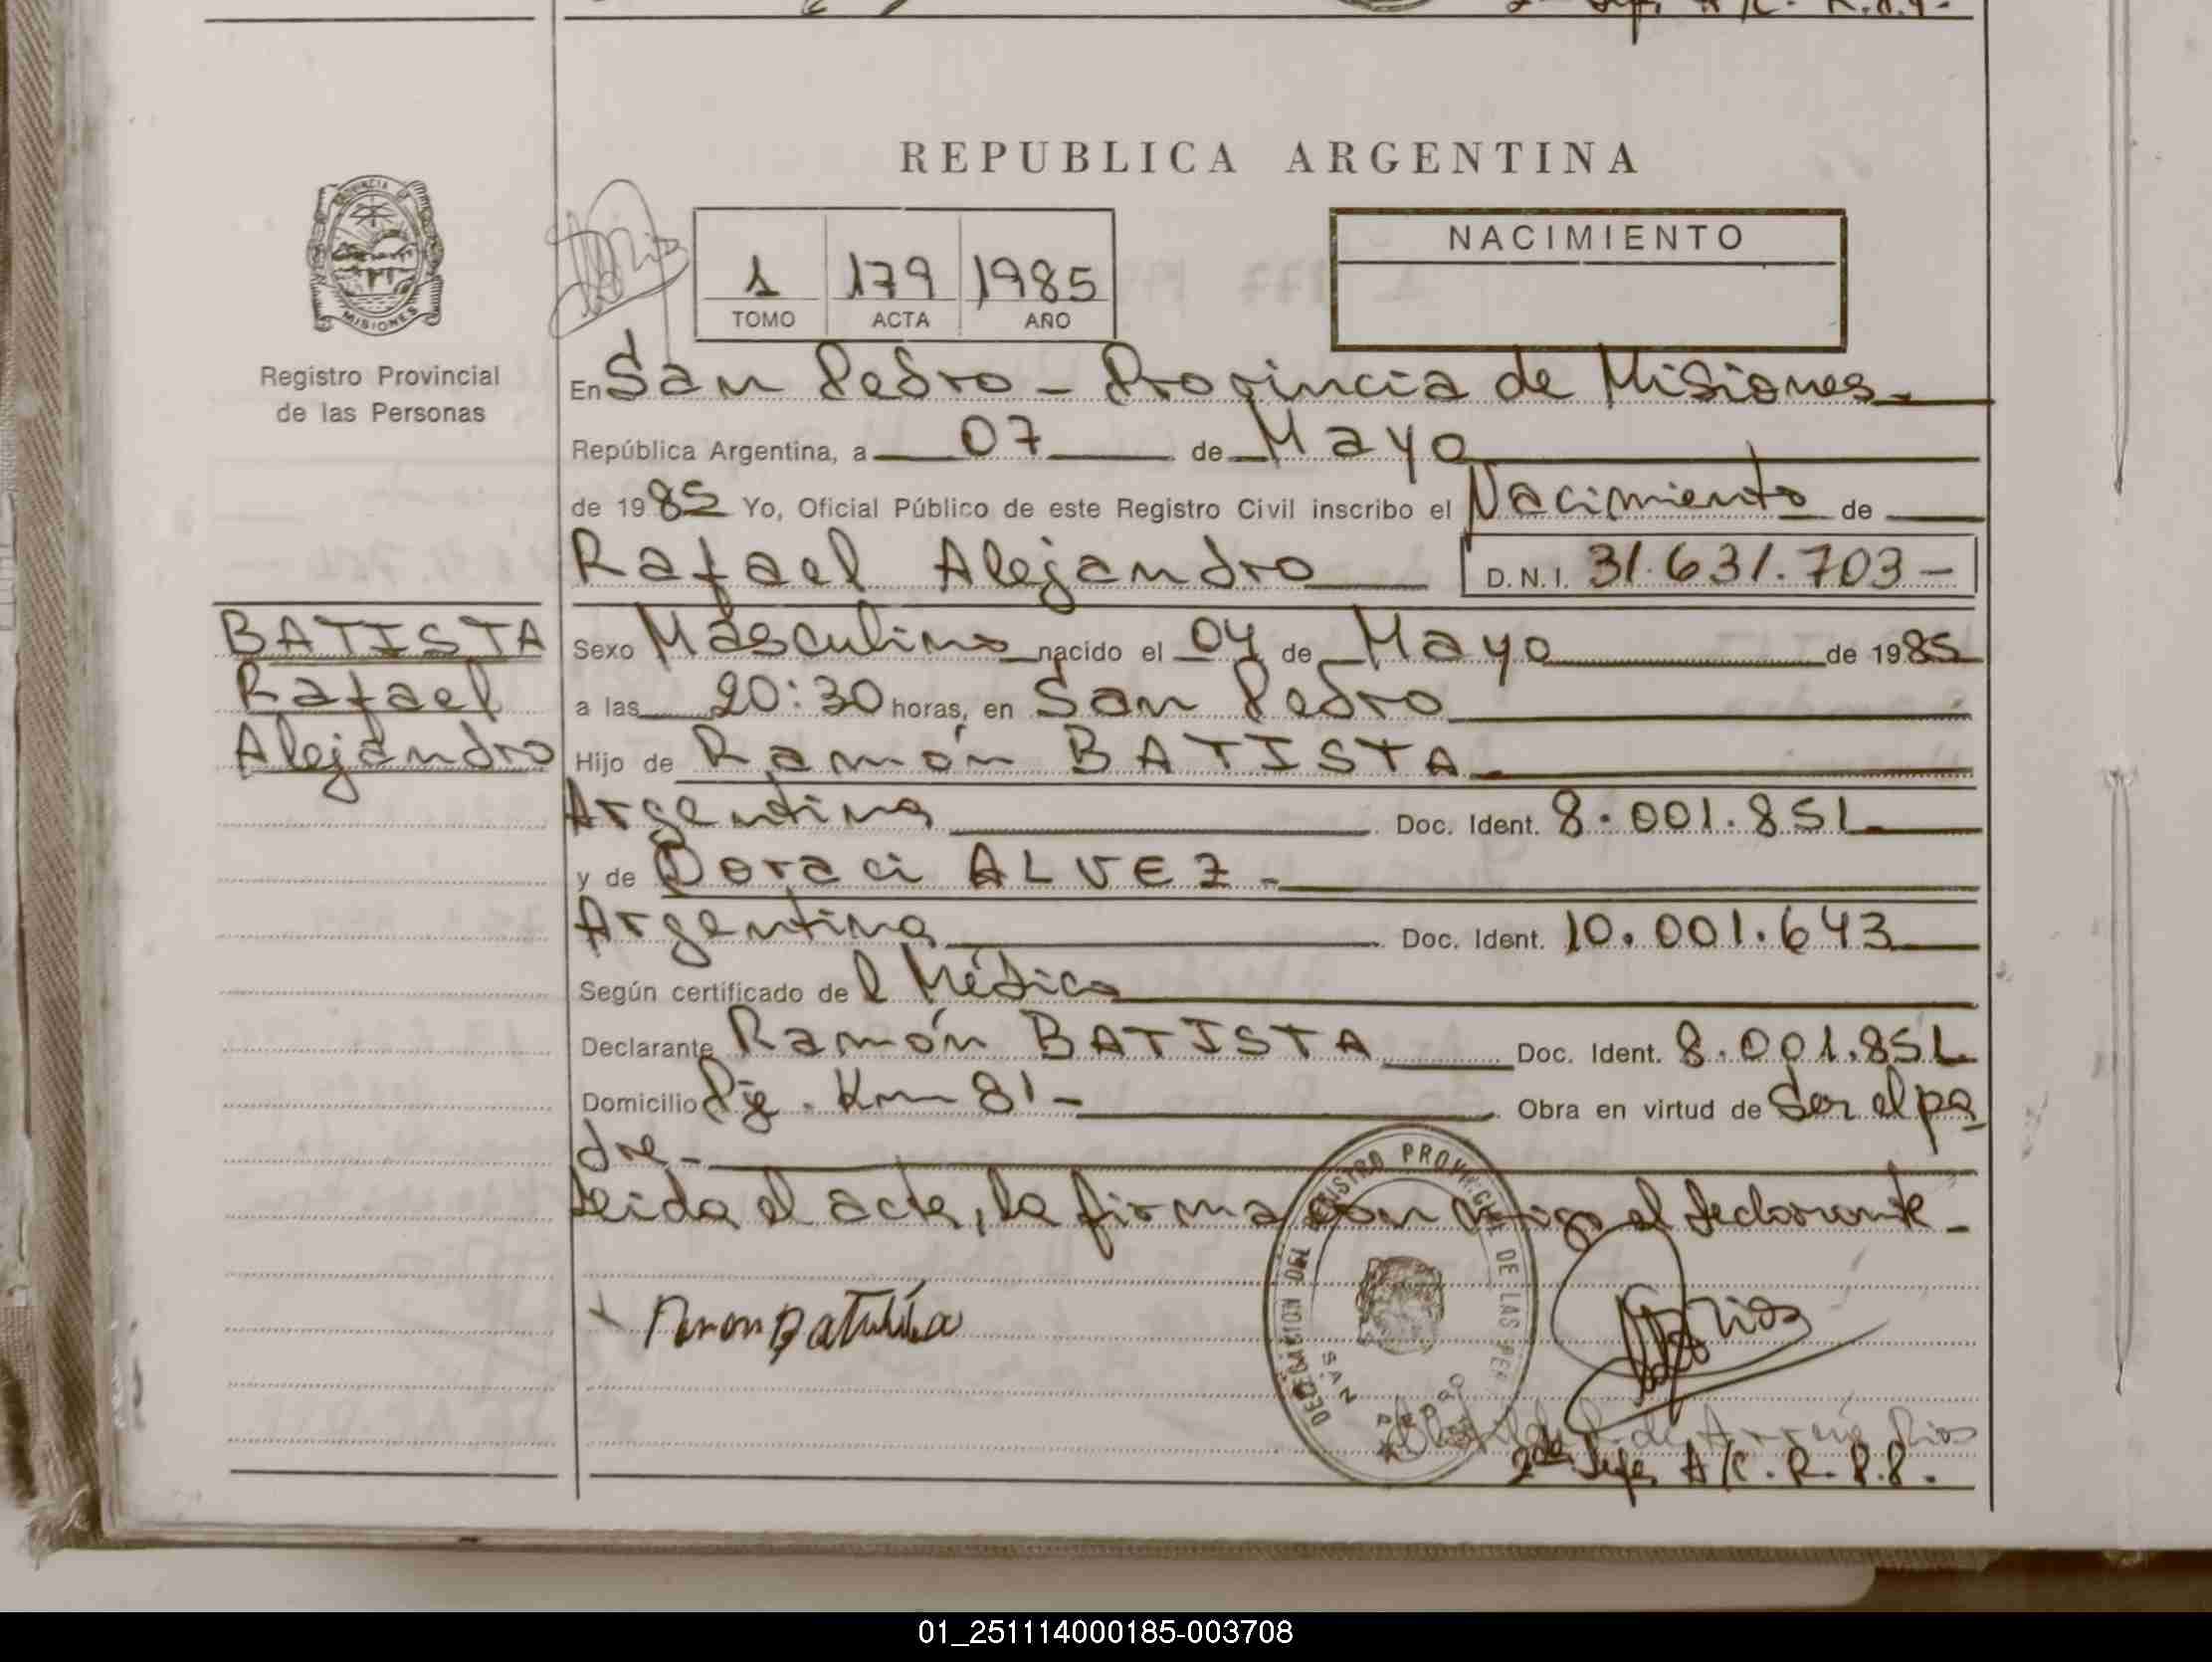 REPUBLICA ARGENTINA
PROVINCIA DE
MISIONES
Registro Provincial
de las Personas
1 179 1985
TOMO ACTA AÑO
NACIMIENTO
En San Pedro - Provincia de Misiones.
República Argentina, a 07 de Mayo
de 1985 Yo, Oficial Público de este Registro Civil inscribo el Nacimiento de
Rafael Alejandro D.N.I. 31.631.703-
BATISTA
Rafael
Alejandro
Sexo Masculino nacido el 04 de Mayo de 1985
a las 20:30 horas, en San Pedro
Hijo de Ramón BATISTA
Argentina Doc. Ident. 8.001.851
y de Doraci ALVEZ -
Argentina Doc. Ident. 10.001.643
Según certificado del Médico
Declarante Ramón BATISTA Doc. Ident. 8.001.851
Domicilio Pje. Km 81 - Obra en virtud de Ser el pa
dre -
Leida el acta, la firma con migo el declarante -
DELEGACION DEL REGISTRO PROVINCIAL DE LAS PER
SAN PEDRO
Rios
2da Jefe A/C. R.P.P.
01_251114000185-003708